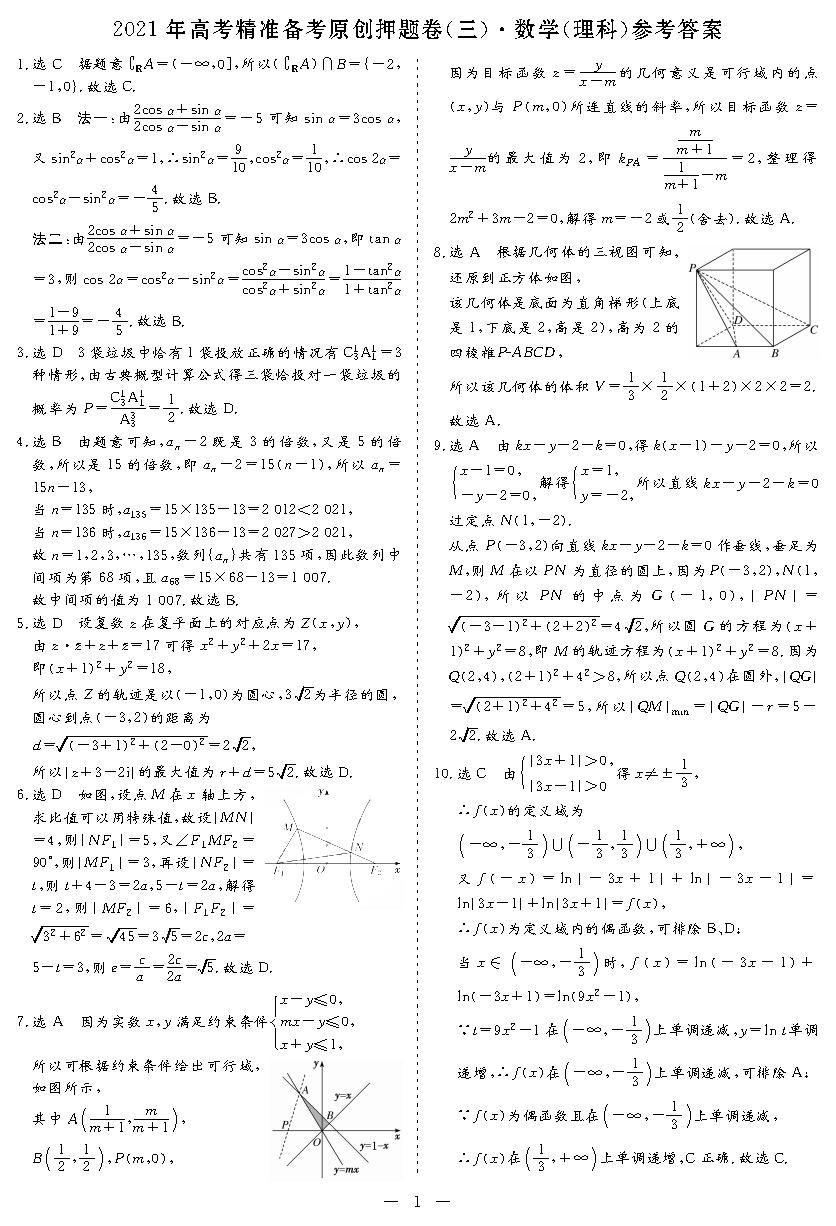 2021年高考精准备考原创押题卷(三)·数学(理科)参考答案
1.选C 据题意∁RA=(-∞,0],所以(∁RA)∩B={-2,
-1,0}.故选C.
2.选B 法一:由(2cos α+sin α)/(2cos α-sin α)=-5可知sin α=3cos α,
又sin²α+cos²α=1,∴sin²α=9/10,cos²α=1/10,∴cos 2α=
cos²α-sin²α=-4/5.故选B.
法二:由(2cos α+sin α)/(2cos α-sin α)=-5可知sin α=3cos α,即tan α
=3,则cos 2α=cos²α-sin²α=(cos²α-sin²α)/(cos²α+sin²α)=(1-tan²α)/(1+tan²α)
=(1-9)/(1+9)=-4/5.故选B.
3.选D 3袋垃圾中恰有1袋投放正确的情况有C₃¹A₁¹=3
种情形,由古典概型计算公式得三袋恰投对一袋垃圾的
概率为P=C₃¹A₁¹/A₃³=1/2.故选D.
4.选B 由题意可知,aₙ-2既是3的倍数,又是5的倍
数,所以是15的倍数,即aₙ-2=15(n-1),所以aₙ=
15n-13,
当n=135时,a₁₃₅=15×135-13=2 012<2 021,
当n=136时,a₁₃₆=15×136-13=2 027>2 021,
故n=1,2,3,…,135,数列{aₙ}共有135项,因此数列中
间项为第68项,且a₆₈=15×68-13=1 007.
故中间项的值为1 007.故选B.
5.选D 设复数z在复平面上的对应点为Z(x,y),
由z·z̄+z+z̄=17可得x²+y²+2x=17,
即(x+1)²+y²=18,
所以点Z的轨迹是以(-1,0)为圆心,3√2为半径的圆,
圆心到点(-3,2)的距离为
d=√((-3+1)²+(2-0)²)=2√2,
所以|z+3-2i|的最大值为r+d=5√2.故选D.
6.选D 如图,设点M在x轴上方,
求比值可以用特殊值,故设|MN|
=4,则|NF₁|=5,又∠F₁MF₂=
90°,则|MF₁|=3,再设|NF₂|=
t,则t+4-3=2a,5-t=2a,解得
t=2,则|MF₂|=6,|F₁F₂|=
√(3²+6²)=√45=3√5=2c,2a=
5-t=3,则e=c/a=2c/2a=√5.故选D.
y
M
N
F₁
O
F₂
x
7.选A 因为实数x,y满足约束条件{x-y≤0,
mx-y≤0,
x+y≤1,
所以可根据约束条件给出可行域,
如图所示,
其中A(1/(m+1),m/(m+1)),
B(1/2,1/2),P(m,0),
y
A
y=x
P
B
O
x
y=1-x
y=mx
因为目标函数z=y/(x-m)的几何意义是可行域内的点
(x,y)与P(m,0)所连直线的斜率,所以目标函数z=
y/(x-m)的最大值为2,即kPA=(m/(m+1))/(1/(m+1)-m)=2,整理得
2m²+3m-2=0,解得m=-2或1/2(舍去).故选A.
8.选A 根据几何体的三视图可知,
还原到正方体如图,
该几何体是底面为直角梯形(上底
是1,下底是2,高是2),高为2的
四棱锥P-ABCD,
P
D
C
A
B
所以该几何体的体积V=1/3×1/2×(1+2)×2×2=2.
故选A.
9.选A 由kx-y-2-k=0,得k(x-1)-y-2=0,所以
{x-1=0, -y-2=0,解得{x=1, y=-2,所以直线kx-y-2-k=0
过定点N(1,-2).
从点P(-3,2)向直线kx-y-2-k=0作垂线,垂足为
M,则M在以PN为直径的圆上,因为P(-3,2),N(1,
-2),所以PN的中点为G(-1,0),|PN|=
√((-3-1)²+(2+2)²)=4√2,所以圆G的方程为(x+
1)²+y²=8,即M的轨迹方程为(x+1)²+y²=8.因为
Q(2,4),(2+1)²+4²>8,所以点Q(2,4)在圆外,|QG|
=√((2+1)²+4²)=5,所以|QM|min=|QG|-r=5-
2√2.故选A.
10.选C 由{|3x+1|>0, |3x-1|>0得x≠±1/3,
∴f(x)的定义域为
(-∞,-1/3)∪(-1/3,1/3)∪(1/3,+∞),
又f(-x)=ln|-3x+1|+ln|-3x-1|=
ln|3x-1|+ln|3x+1|=f(x),
∴f(x)为定义域内的偶函数,可排除B、D;
当x∈(-∞,-1/3)时,f(x)=ln(-3x-1)+
ln(-3x+1)=ln(9x²-1),
∵t=9x²-1在(-∞,-1/3)上单调递减,y=ln t单调
递增,∴f(x)在(-∞,-1/3)上单调递减,可排除A;
∵f(x)为偶函数且在(-∞,-1/3)上单调递减,
∴f(x)在(1/3,+∞)上单调递增,C正确.故选C.
— 1 —